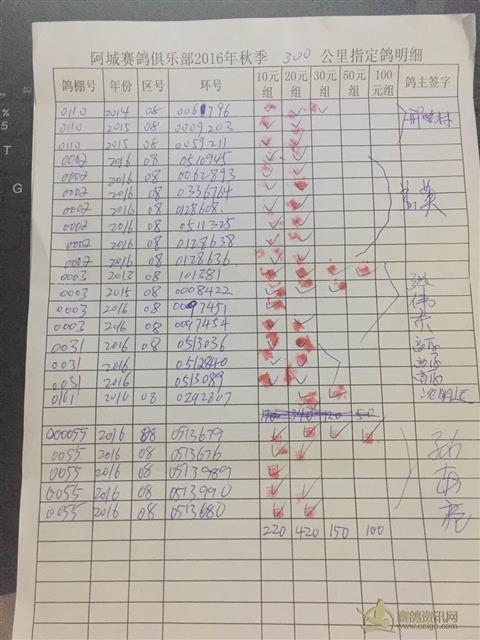 阿城赛鸽俱乐部2016年秋季 300 公里指定鸽明细
鸽棚号 年份 区号 环号 10元组 20元组 30元组 50元组 100元组 鸽主签字
0110 2014 08 0061796 ✓ ✓
0110 2015 08 0009203 ✓ ✓
0110 2015 08 0059211 ✓ ✓
0002 2016 08 0510945 ✓ ✓
0002 2016 08 0062893 ✓ ✓
0002 2016 08 0336764 ✓ ✓
0002 2016 08 0128608 ✓ ✓
0002 2016 08 0511325 ✓ ✓
0002 2016 08 0128638 ✓ ✓
0002 2016 08 0128636 ✓ ✓
0003 2013 08 101381 ✓ ✓ ✓ ✓
0003 2015 08 0008422 ✓ ✓ ✓ ✓
0003 2016 08 0097451 ✓
0003 2016 08 0097454 ✓ ✓
0031 2016 08 0513036 ✓ ✓
0031 2016 0512840 ✓ ✓
0031 2016 0513089 ✓ ✓
0161 2010 08 0292807 ✓ ✓
00055 2016 08 0513679 ✓ ✓ ✓ ✓
0055 2016 08 0513676 ✓ ✓
0055 2016 08 0513989 ✓
0055 2016 08 0513990 ✓ ✓
0055 2016 08 0513680 ✓ ✓
220 420 150 100
5
T
G
赛鸽资讯网